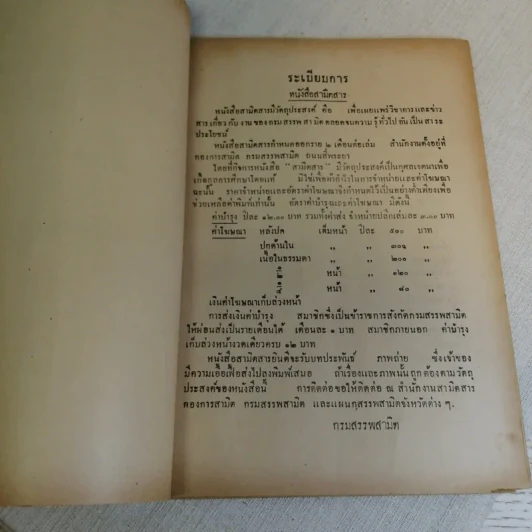 ระเบียบการ
หนังสือสามิตสาร
หนังสือสามิตสารมีวัตถุประสงค์ คือ เพื่อเผยแพร่วิชาการและข่าว
สารเกี่ยวกับงานของกรมสรรพสามิต ตลอดจนความรู้ทั่วไป อันเป็นสาระ
ประโยชน์
หนังสือสามิตสารกำหนดออกราย ๒ เดือนต่อเล่ม สำนักงานตั้งอยู่ที่
กองการสามิต กรมสรรพสามิต ถนนสี่พระยา
โดยที่กิจการหนังสือ “สามิตสาร” มีวัตถุประสงค์เป็นกุศลเจตนาเพื่อ
เกื้อกูลการศึกษาโดยแท้ มิใช่เพื่อค้ากำไรในการจำหน่ายและค่าโฆษณา
ฉะนั้น ราคาจำหน่ายและอัตราค่าโฆษณาจึงกำหนดไว้เป็นอย่างต่ำเพียงเพื่อ
ช่วยเหลือค่าพิมพ์เท่านั้น อัตราค่าบำรุงและค่าโฆษณา มีดังนี้
ค่าบำรุง ปีละ ๑๒.๐๐ บาท รวมทั้งค่าส่ง จำหน่ายปลีกเล่มละ ๓.๐๐ บาท
ค่าโฆษณา หลังปก เต็มหน้า ปีละ ๕๐๐ บาท
ปกด้านใน ,, ,, ๓๐๐ ,,
เนื้อในธรรมดา ,, ,, ๒๐๐ ,,
๑/๒ หน้า ,, ๑๒๐ ,,
๑/๔ หน้า ,, ๘๐ ,,
เงินค่าโฆษณาเก็บล่วงหน้า
การส่งเงินค่าบำรุง สมาชิกซึ่งเป็นข้าราชการสังกัดกรมสรรพสามิต
ให้ผ่อนส่งเป็นรายเดือนได้ เดือนละ ๑ บาท สมาชิกภายนอก ค่าบำรุง
เก็บล่วงหน้างวดเดียวครบ ๑๒ บาท
หนังสือสามิตสารยินดีจะรับบทประพันธ์ ภาพถ่าย ซึ่งเจ้าของ
มีความเอื้อเฟื้อส่งไปลงพิมพ์เสมอ ถ้าเรื่องและภาพนั้นถูกต้องตามวัตถุ
ประสงค์ของหนังสือนี้ การติดต่อขอให้ติดต่อ ณ สำนักงานสามิตสาร
กองการสามิต กรมสรรพสามิต และแผนกสรรพสามิตจังหวัดต่าง ๆ.
กรมสรรพสามิต